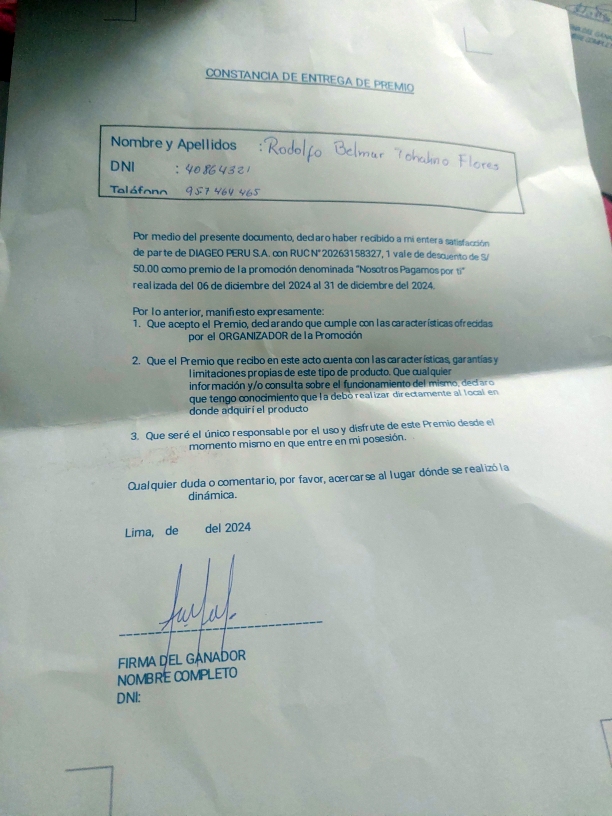 CONSTANCIA DE ENTREGA DE PREMIO
Nombre y Apellidos : Rodolfo Belmar Flores
DNI : 40864321
Teléfono 957 464 465
Por medio del presente documento, declaro haber recibido a mi entera satisfacción
de parte de DIAGEO PERU S.A. con RUC N° 20263158327, 1 vale de descuento de S/
50.00 como premio de la promoción denominada "Nosotros Pagamos por ti"
realizada del 06 de diciembre del 2024 al 31 de diciembre del 2024.
Por lo anterior, manifiesto expresamente:
1. Que acepto el Premio, declarando que cumple con las características ofrecidas
por el ORGANIZADOR de la Promoción
2. Que el Premio que recibo en este acto cuenta con las características, garantías y
limitaciones propias de este tipo de producto. Que cualquier
información y/o consulta sobre el funcionamiento del mismo, declaro
que tengo conocimiento que la debo realizar directamente al local en
donde adquirí el producto
3. Que seré el único responsable por el uso y disfrute de este Premio desde el
momento mismo en que entre en mi posesión.
Cualquier duda o comentario, por favor, acercarse al lugar dónde se realizó la
dinámica.
Lima, de del 2024
FIRMA DEL GANADOR
NOMBRE COMPLETO
DNI: